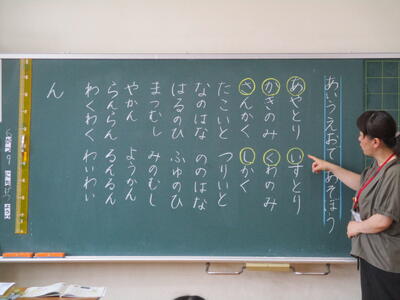 あいうえおであそぼう
あやとり いすとり
かきのみ くわのみ
さんかく しかく
たこいと つりいと
なのはな ののはな
はるのひ ふゆのひ
まつむし みのむし
やかん ようかん
らんらん るんるん
わくわく わいわい
ん